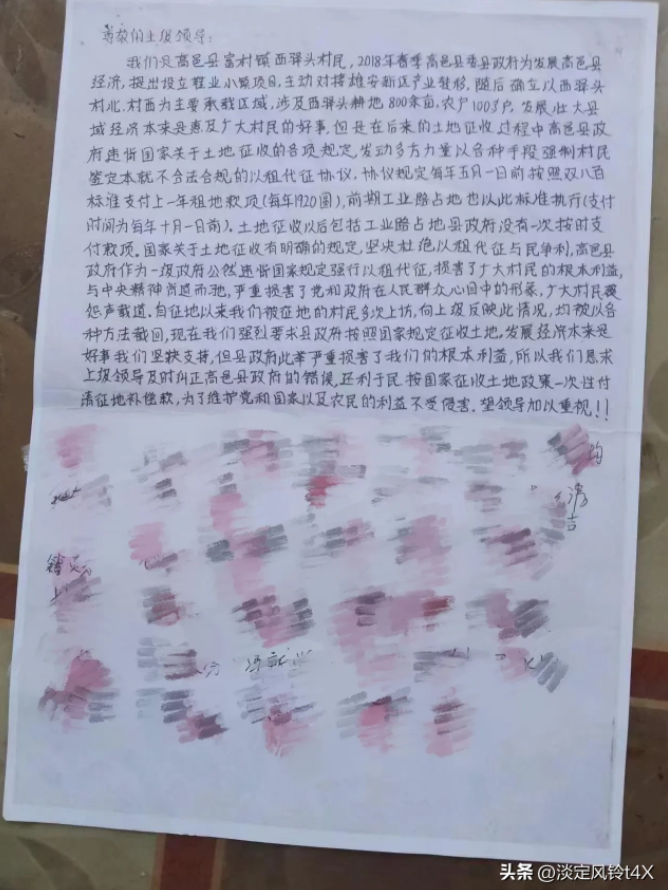 尊敬的上级领导：
我们是高邑县富村镇西驿头村民，2018年春季高邑县委县政府为发展高邑县
经济，提出设立鞋业小镇项目，主动对接雄安新区产业转移，随后确立以西驿头
村北，村西为主要承载区域，涉及西驿头耕地800余亩，农户100多户，发展壮大县
域经济本来是惠及广大村民的好事，但是在后来的土地征收过程中高邑县政
府违背国家关于土地征收的各项规定，发动多方力量以各种手段强制村民
签定本就不合法合规的以租代征协议，协议规定每年五月一日前按照双八百
标准支付上一年租地款项(每年1920圆)，前期工业路占地也以此标准执行(支付
时间为每年十月一日前)。土地征收以后包括工业路占地县政府没有一次按时支
付款项。国家关于土地征收有明确的规定，坚决杜绝以租代征与民争利，高邑县
政府作为一级政府公然违背国家规定强行以租代征，损害了广大村民的根本利益，
与中央精神背道而驰，严重损害了党和政府在人民群众心目中的形象，广大村民
怨声载道。自征地以来我们被征地的村民多次上访，向上级反映此情况，均被以各
种方法截回，现在我们强烈要求县政府按照国家规定征收土地。发展经济本来是
好事我们坚决支持，但县政府此举严重损害了我们的根本利益，所以我们恳求
上级领导及时纠正高邑县政府的错误，还利于民按国家征收土地政策一次性付
清征地补偿款，为了维护党和国家以及农民的利益不受侵害。望领导加以重视！！
头条 @淡定风铃t4X